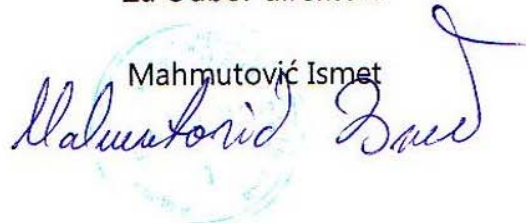 Mahmutović Ismet
Mahmutović Ismet